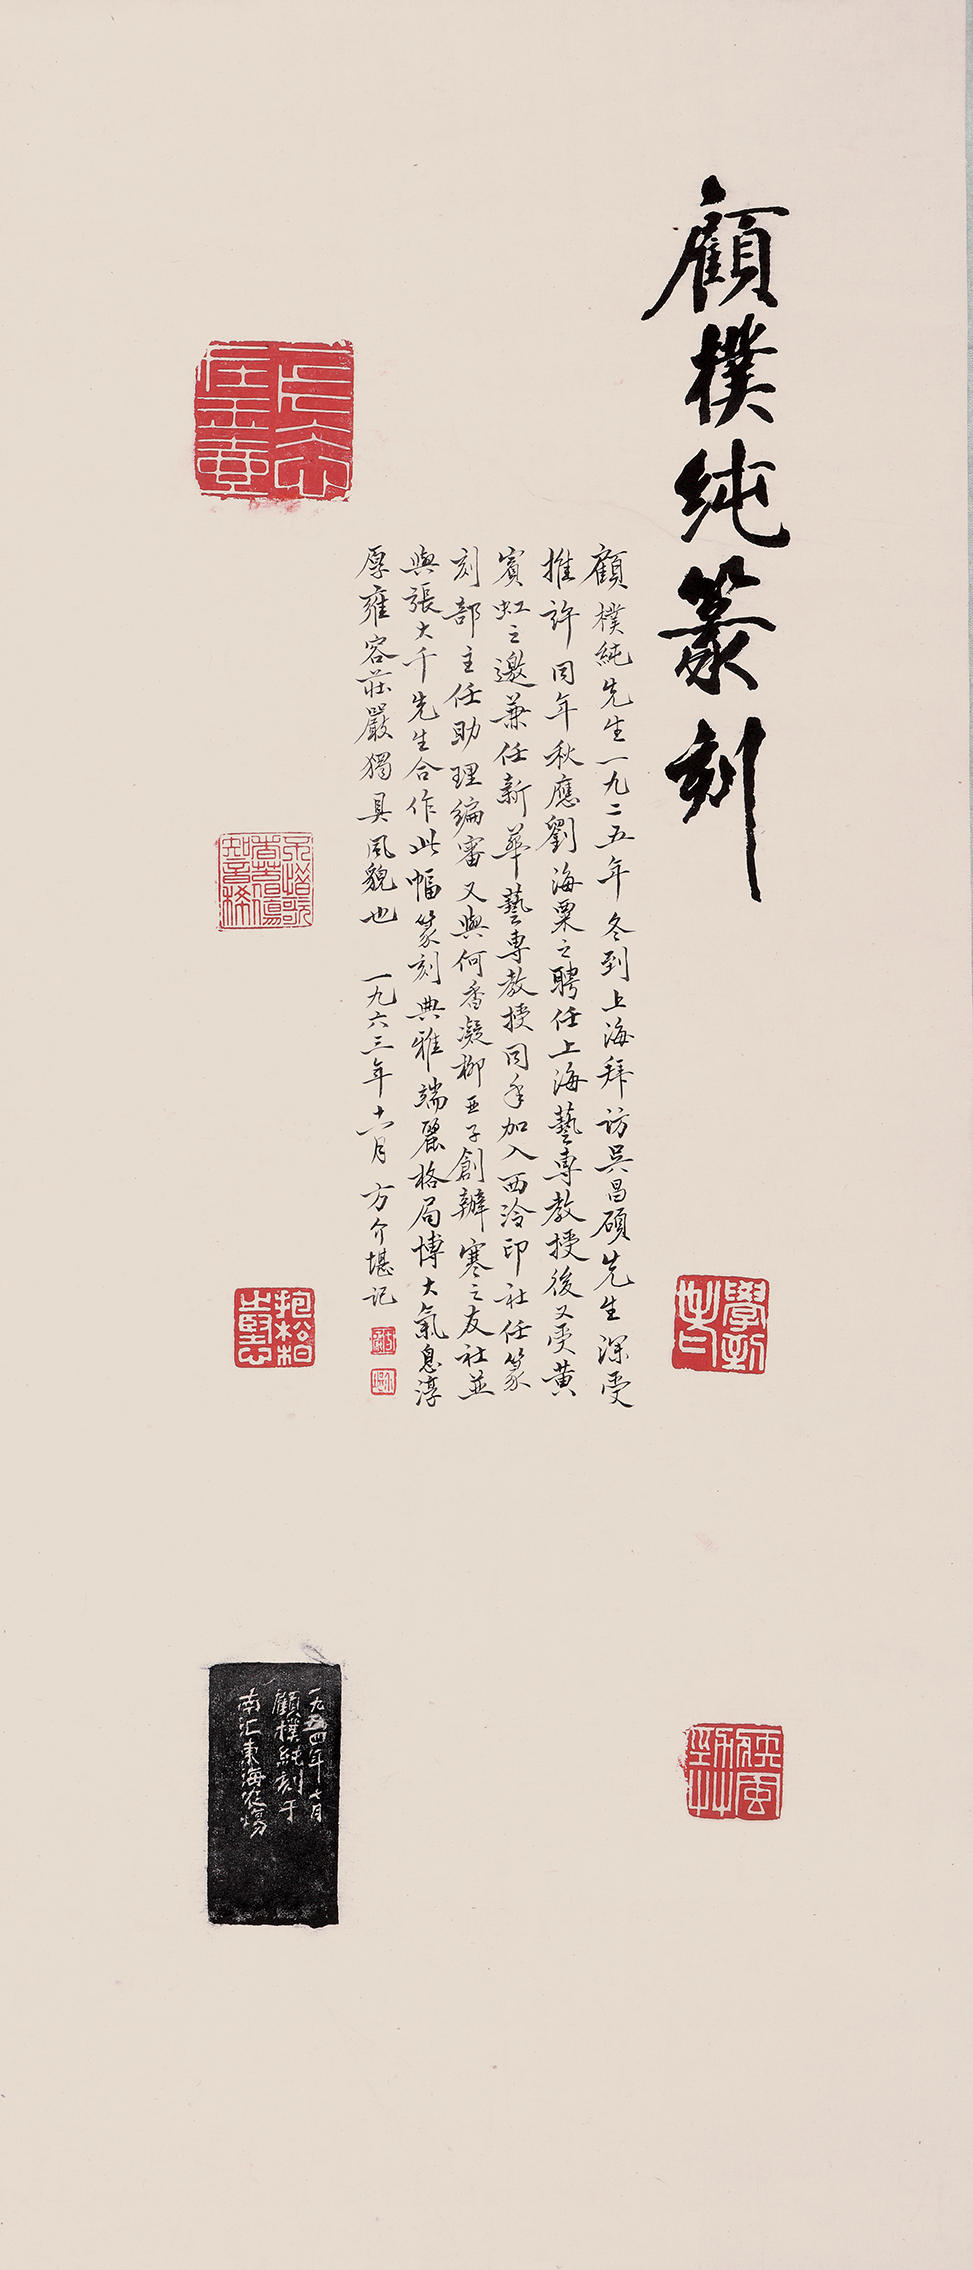 顧樸純篆刻
顧樸純先生一九二五年冬到上海拜访吳昌碩先生深受
推許同年秋應劉海粟之聘任上海藝専教授後又受黄
賓虹之邀兼任新華藝専教授同年加入西泠印社任篆
刻部主任助理編審又與何香凝柳亞子創辦寒之友社並
與張大千先生合作此幅篆刻典雅端麗格局博大氣息淳
厚雍容莊嚴獨具風貌也 一九六三年十一月 方介堪记
不惜歌
者苦傷
知音稀
學到
老
抱松柏
之堅心
疾風
勁艸
一九五四年七月
顧樸純刻于
南汇東海农場